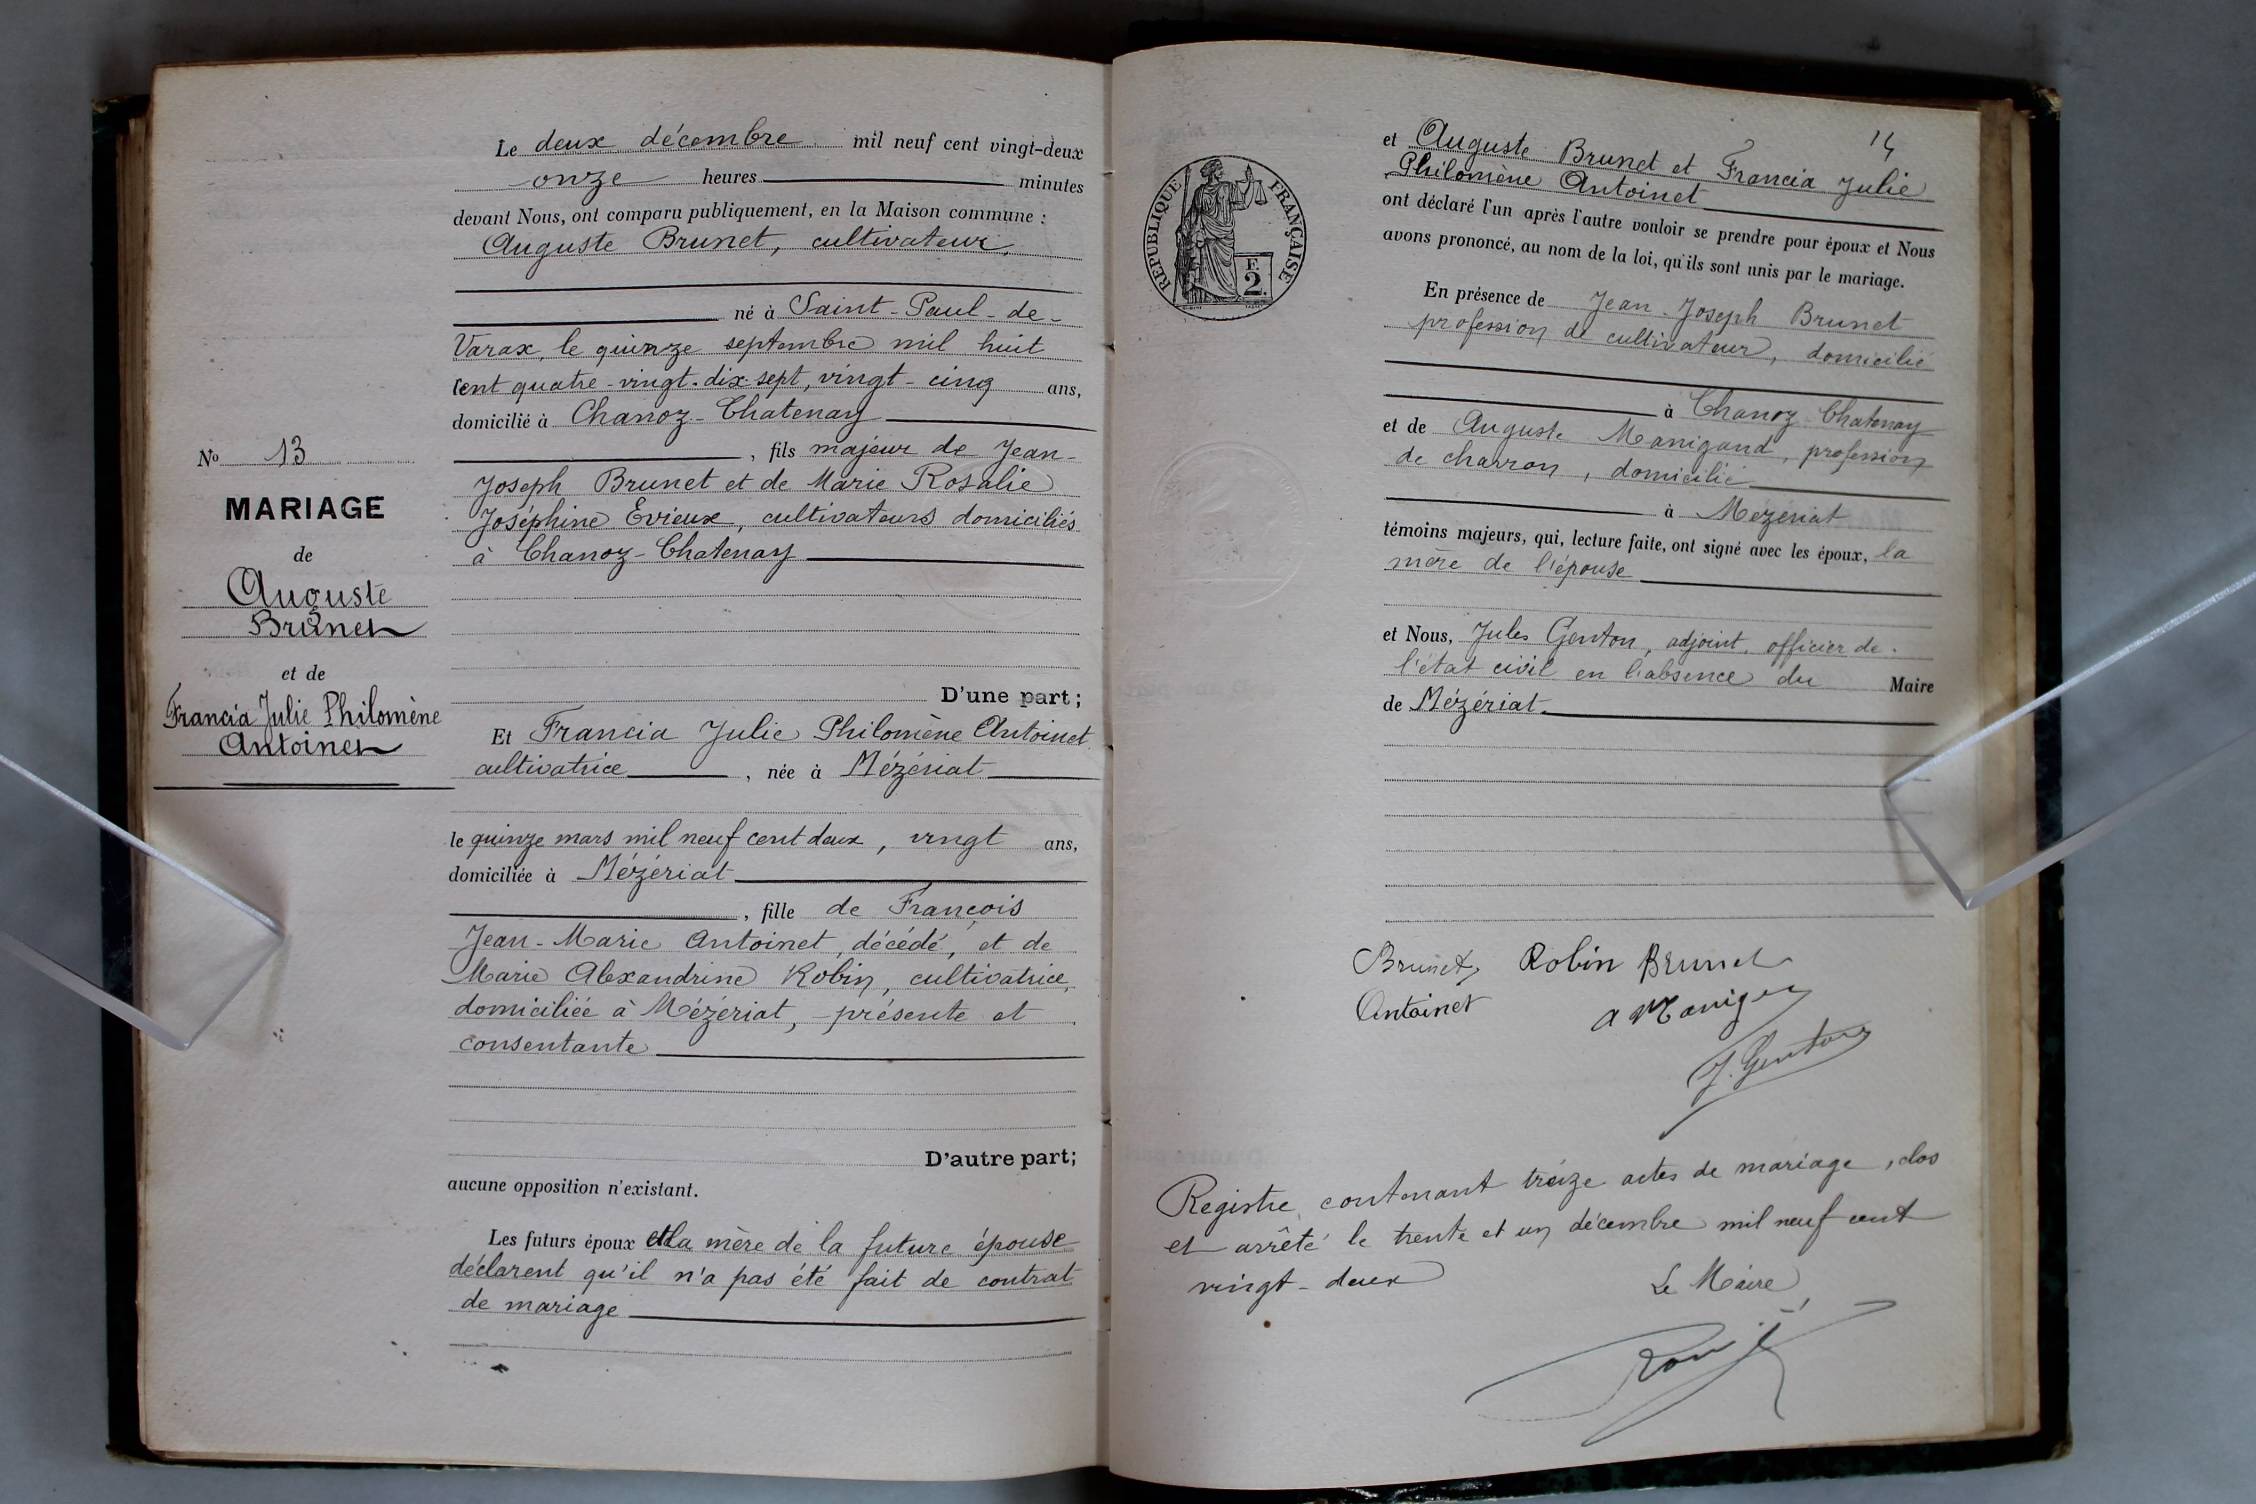 Le deux décembre mil neuf cent vingt-deux
onze heures minutes
devant Nous, ont comparu publiquement, en la Maison commune :
Auguste Brunet, cultivateur,
né à Saint-Paul-de-
Varax, le quinze septembre mil huit
cent quatre-vingt-dix-sept, vingt-cinq ans,
domicilié à Chanoz-Chatenay
, fils majeur de Jean-
Joseph Brunet et de Marie Rosalie
Joséphine Evieux, cultivateurs domiciliés
à Chanoz-Chatenay
D'une part;
Et Francia Julie Philomène Antoinet
cultivatrice, née à Mézériat
le quinze mars mil neuf cent deux, vingt ans,
domiciliée à Mézériat
, fille de François
Jean-Marie Antoinet, décédé, et de
Marie Alexandrine Robin, cultivatrice,
domiciliée à Mézériat, présente et
consentante
D'autre part;
aucune opposition n'existant.
Les futurs époux et la mère de la future épouse
déclarent qu'il n'a pas été fait de contrat
de mariage
No 13
MARIAGE
de
Auguste
Brunet
et de
Francia Julie Philomène
Antoinet
14
RÉPUBLIQUE FRANÇAISE
F.
2.
et Auguste Brunet et Francia Julie
Philomène Antoinet
ont déclaré l'un après l'autre vouloir se prendre pour époux et Nous
avons prononcé, au nom de la loi, qu'ils sont unis par le mariage.
En présence de Jean-Joseph Brunet
profession de cultivateur, domicilié
à Chanoz-Chatenay
et de Auguste Manigand, profession
de charron, domicilié
à Mézériat
témoins majeurs, qui, lecture faite, ont signé avec les époux, la
mère de l'épouse
et Nous, Jules Genton, adjoint, officier de
l'état civil en l'absence du Maire
de Mézériat
Brunet Robin Brunet
Antoinet
J. Genton
Registre contenant treize actes de mariage, clos
et arrêté le trente et un décembre mil neuf cent
vingt-deux
Le Maire